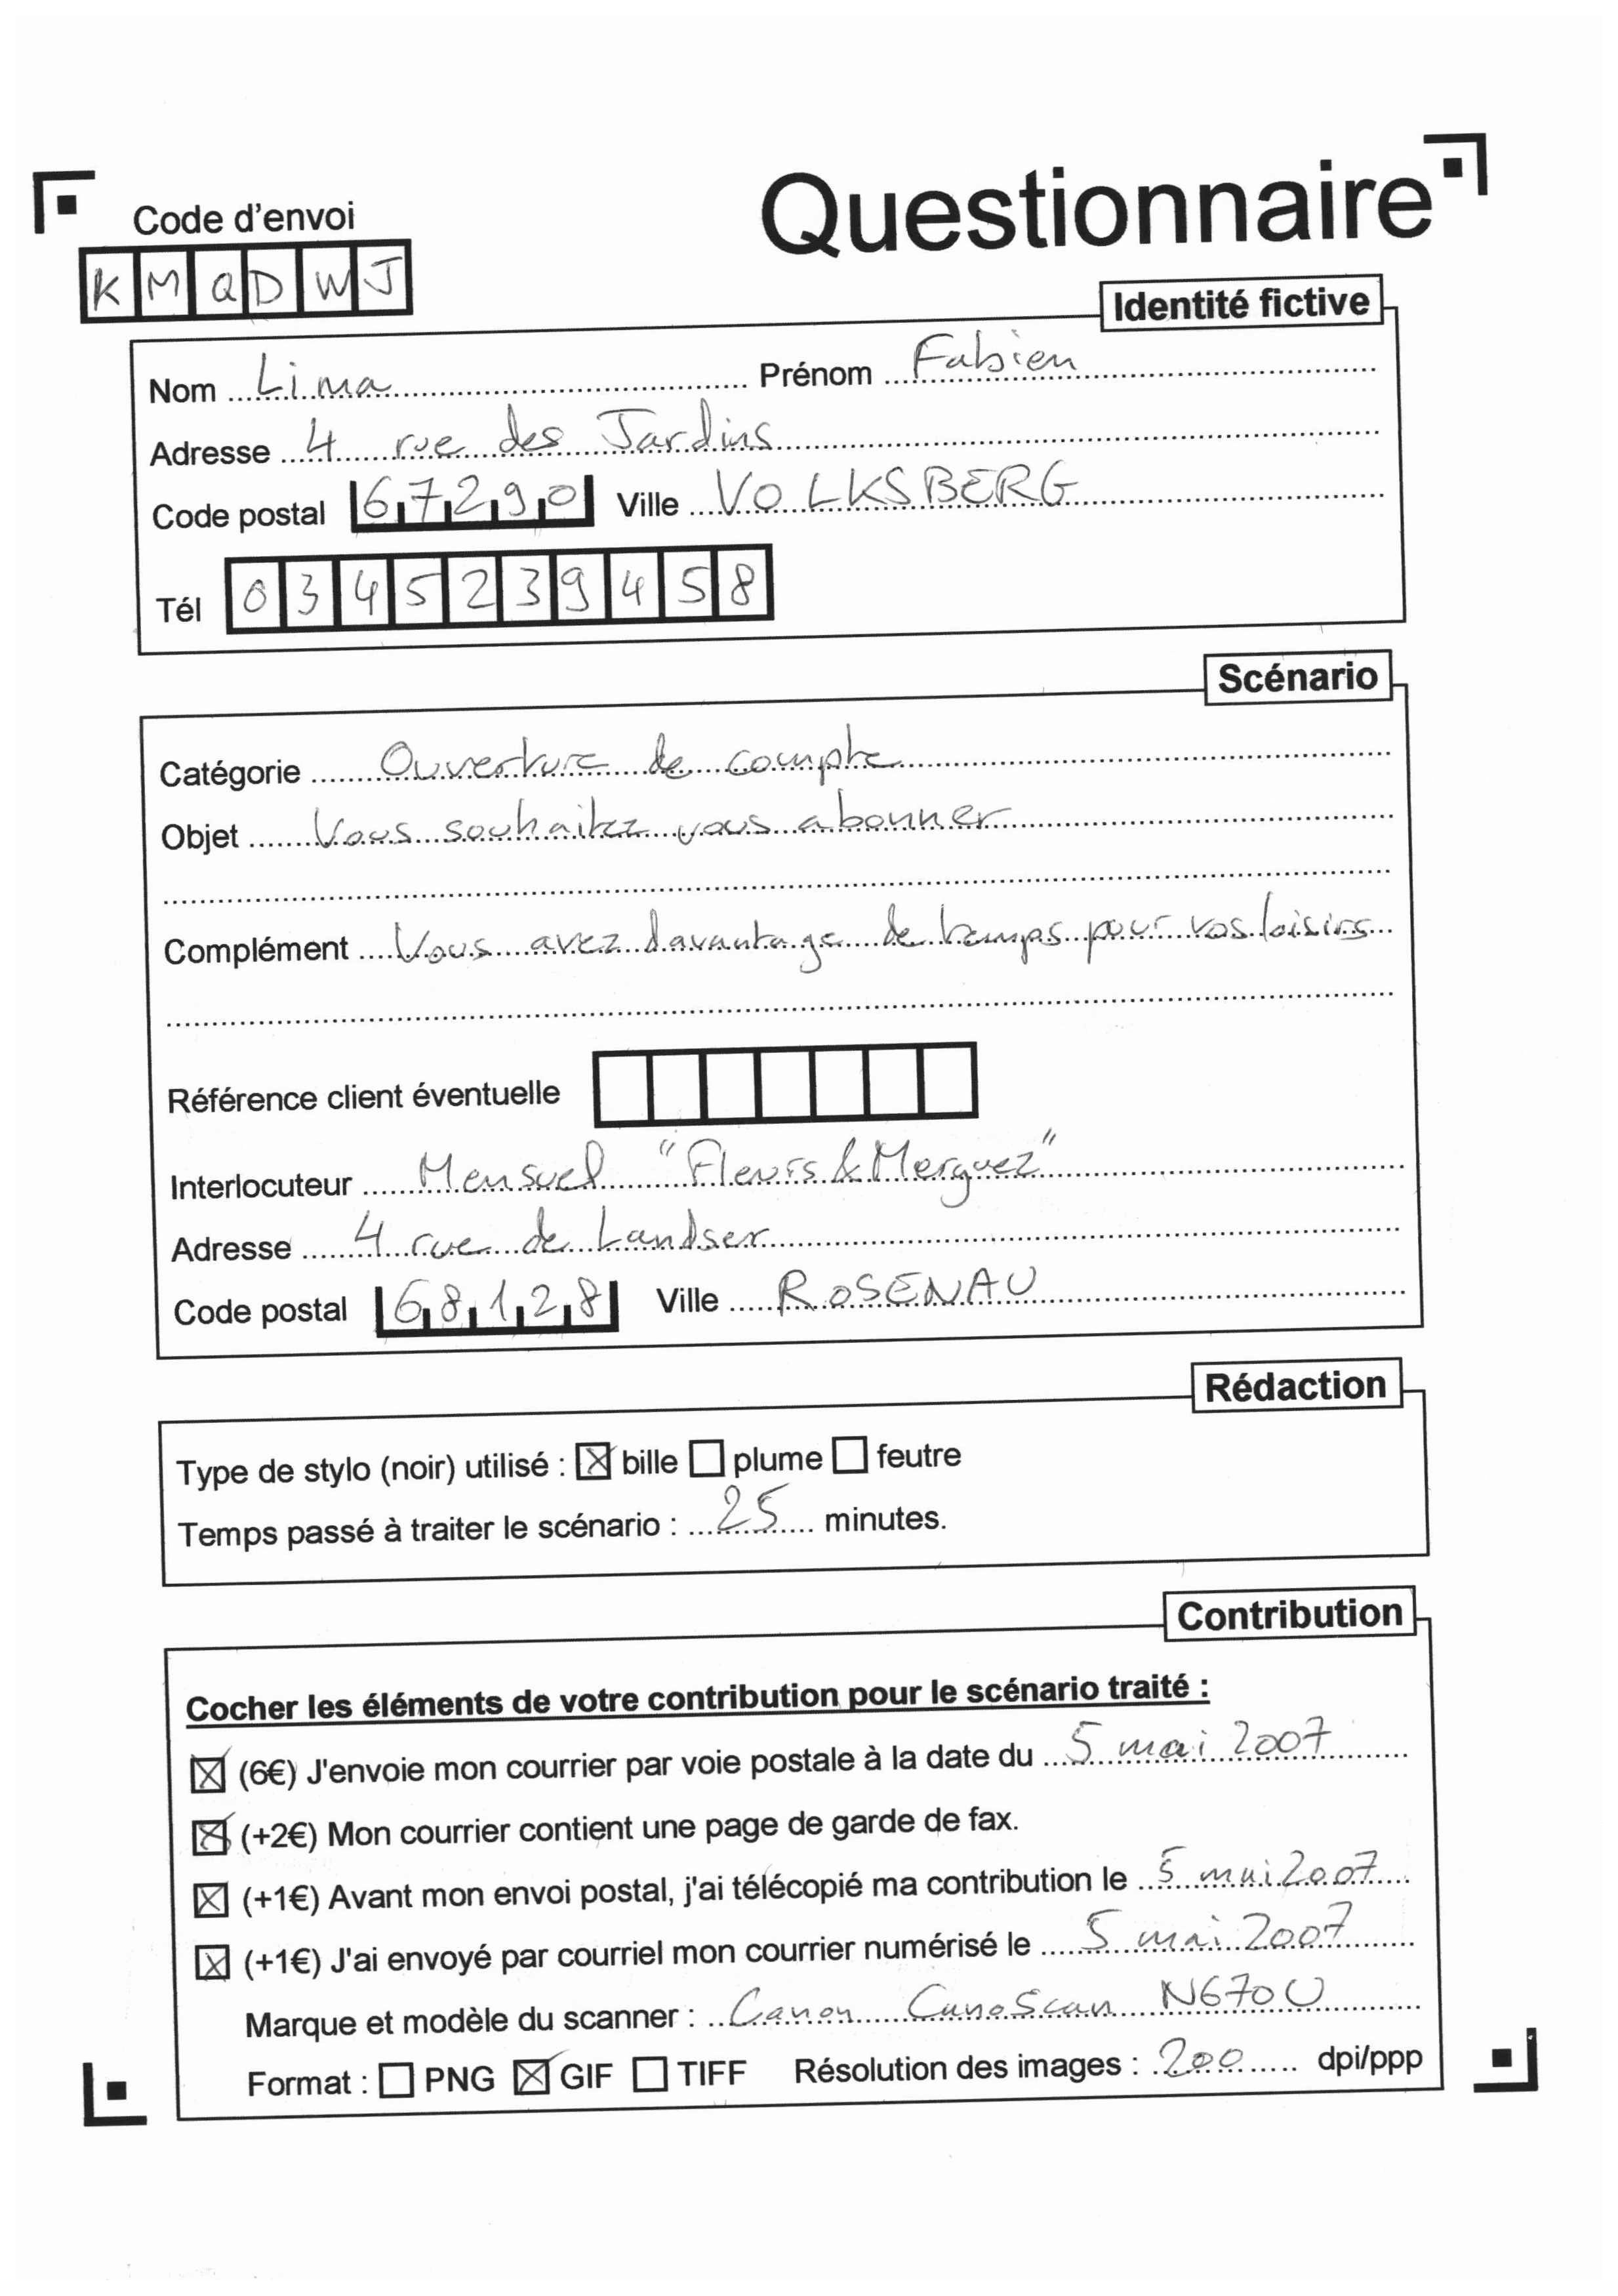 Questionnaire
Code d'envoi
KMQDWJ
Identité fictive
Nom Lima Prénom Fabien
Adresse 4 rue des Jardins
Code postal 67290 Ville VOLKSBERG
Tél 0345239458
Scénario
Catégorie Ouverture de compte
Objet Vous souhaitez vous abonner
Complément Vous avez davantage de temps pour vos loisirs
Référence client éventuelle
Interlocuteur Mensuel "Fleurs & Merguez"
Adresse 4 rue de Landser
Code postal 68128 Ville ROSENAU
Rédaction
Type de stylo (noir) utilisé : ☒ bille ☐ plume ☐ feutre
Temps passé à traiter le scénario : 25 minutes.
Contribution
Cocher les éléments de votre contribution pour le scénario traité :
☒ (6€) J'envoie mon courrier par voie postale à la date du 5 mai 2007
☒ (+2€) Mon courrier contient une page de garde de fax.
☒ (+1€) Avant mon envoi postal, j'ai télécopié ma contribution le 5 mai 2007
☒ (+1€) J'ai envoyé par courriel mon courrier numérisé le 5 mai 2007
Marque et modèle du scanner : Canon CanoScan N670U
Format : ☐ PNG ☒ GIF ☐ TIFF Résolution des images : 200 dpi/ppp